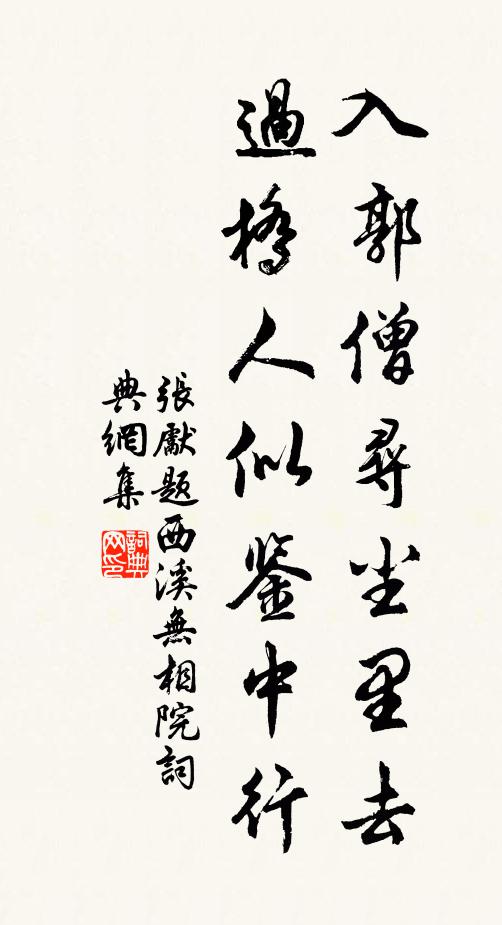 入郭僧尋尘里去
過橋人似鉴中行
張獻題西溪無相院詞
典網集
詞典网印